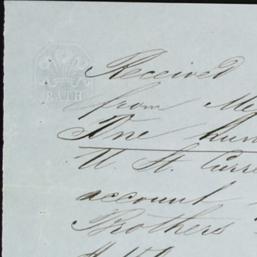 BATH
Received
from Me
One hun
U. St. Curre
account
Brothers